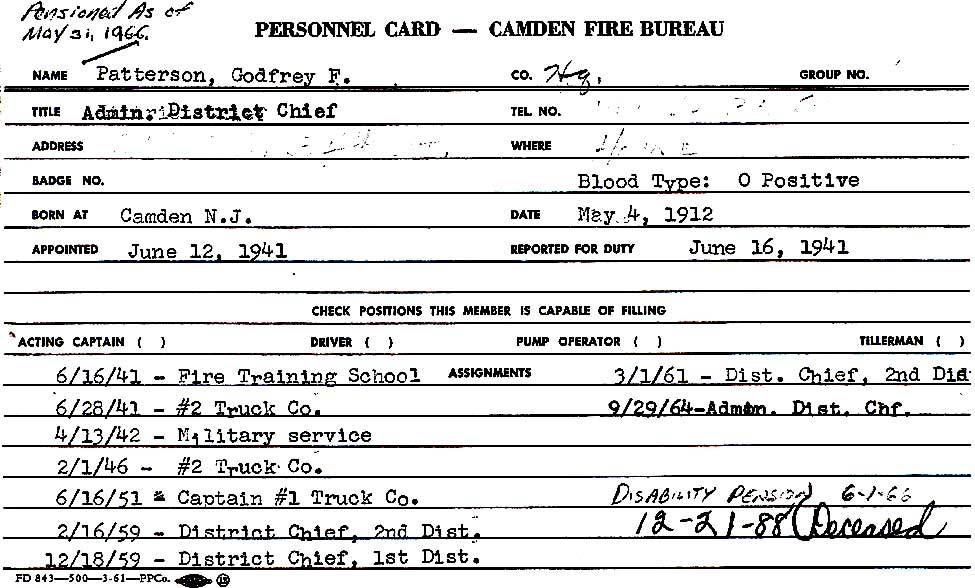 Pensioned As of
May 31, 1966.
PERSONNEL CARD — CAMDEN FIRE BUREAU
NAME Patterson, Godfrey F. CO. Hq. GROUP NO.
TITLE Admin. District Chief TEL. NO.
ADDRESS WHERE Home
BADGE NO. Blood Type: O Positive
BORN AT Camden N.J. DATE May 4, 1912
APPOINTED June 12, 1941 REPORTED FOR DUTY June 16, 1941
CHECK POSITIONS THIS MEMBER IS CAPABLE OF FILLING
ACTING CAPTAIN ( ) DRIVER ( ) PUMP OPERATOR ( ) TILLERMAN ( )
6/16/41 - Fire Training School ASSIGNMENTS 3/1/61 - Dist. Chief, 2nd Dis
6/28/41 - #2 Truck Co. 9/29/64-Admn. Dist. Chf.
4/13/42 - Military service
2/1/46 - #2 Truck Co.
6/16/51 - Captain #1 Truck Co. DISABILITY PENSION 6-1-66
2/16/59 - District Chief, 2nd Dist. 12-21-88 (Deceased
12/18/59 - District Chief, 1st Dist.
FD 843—500—3-61—PPCo. 15